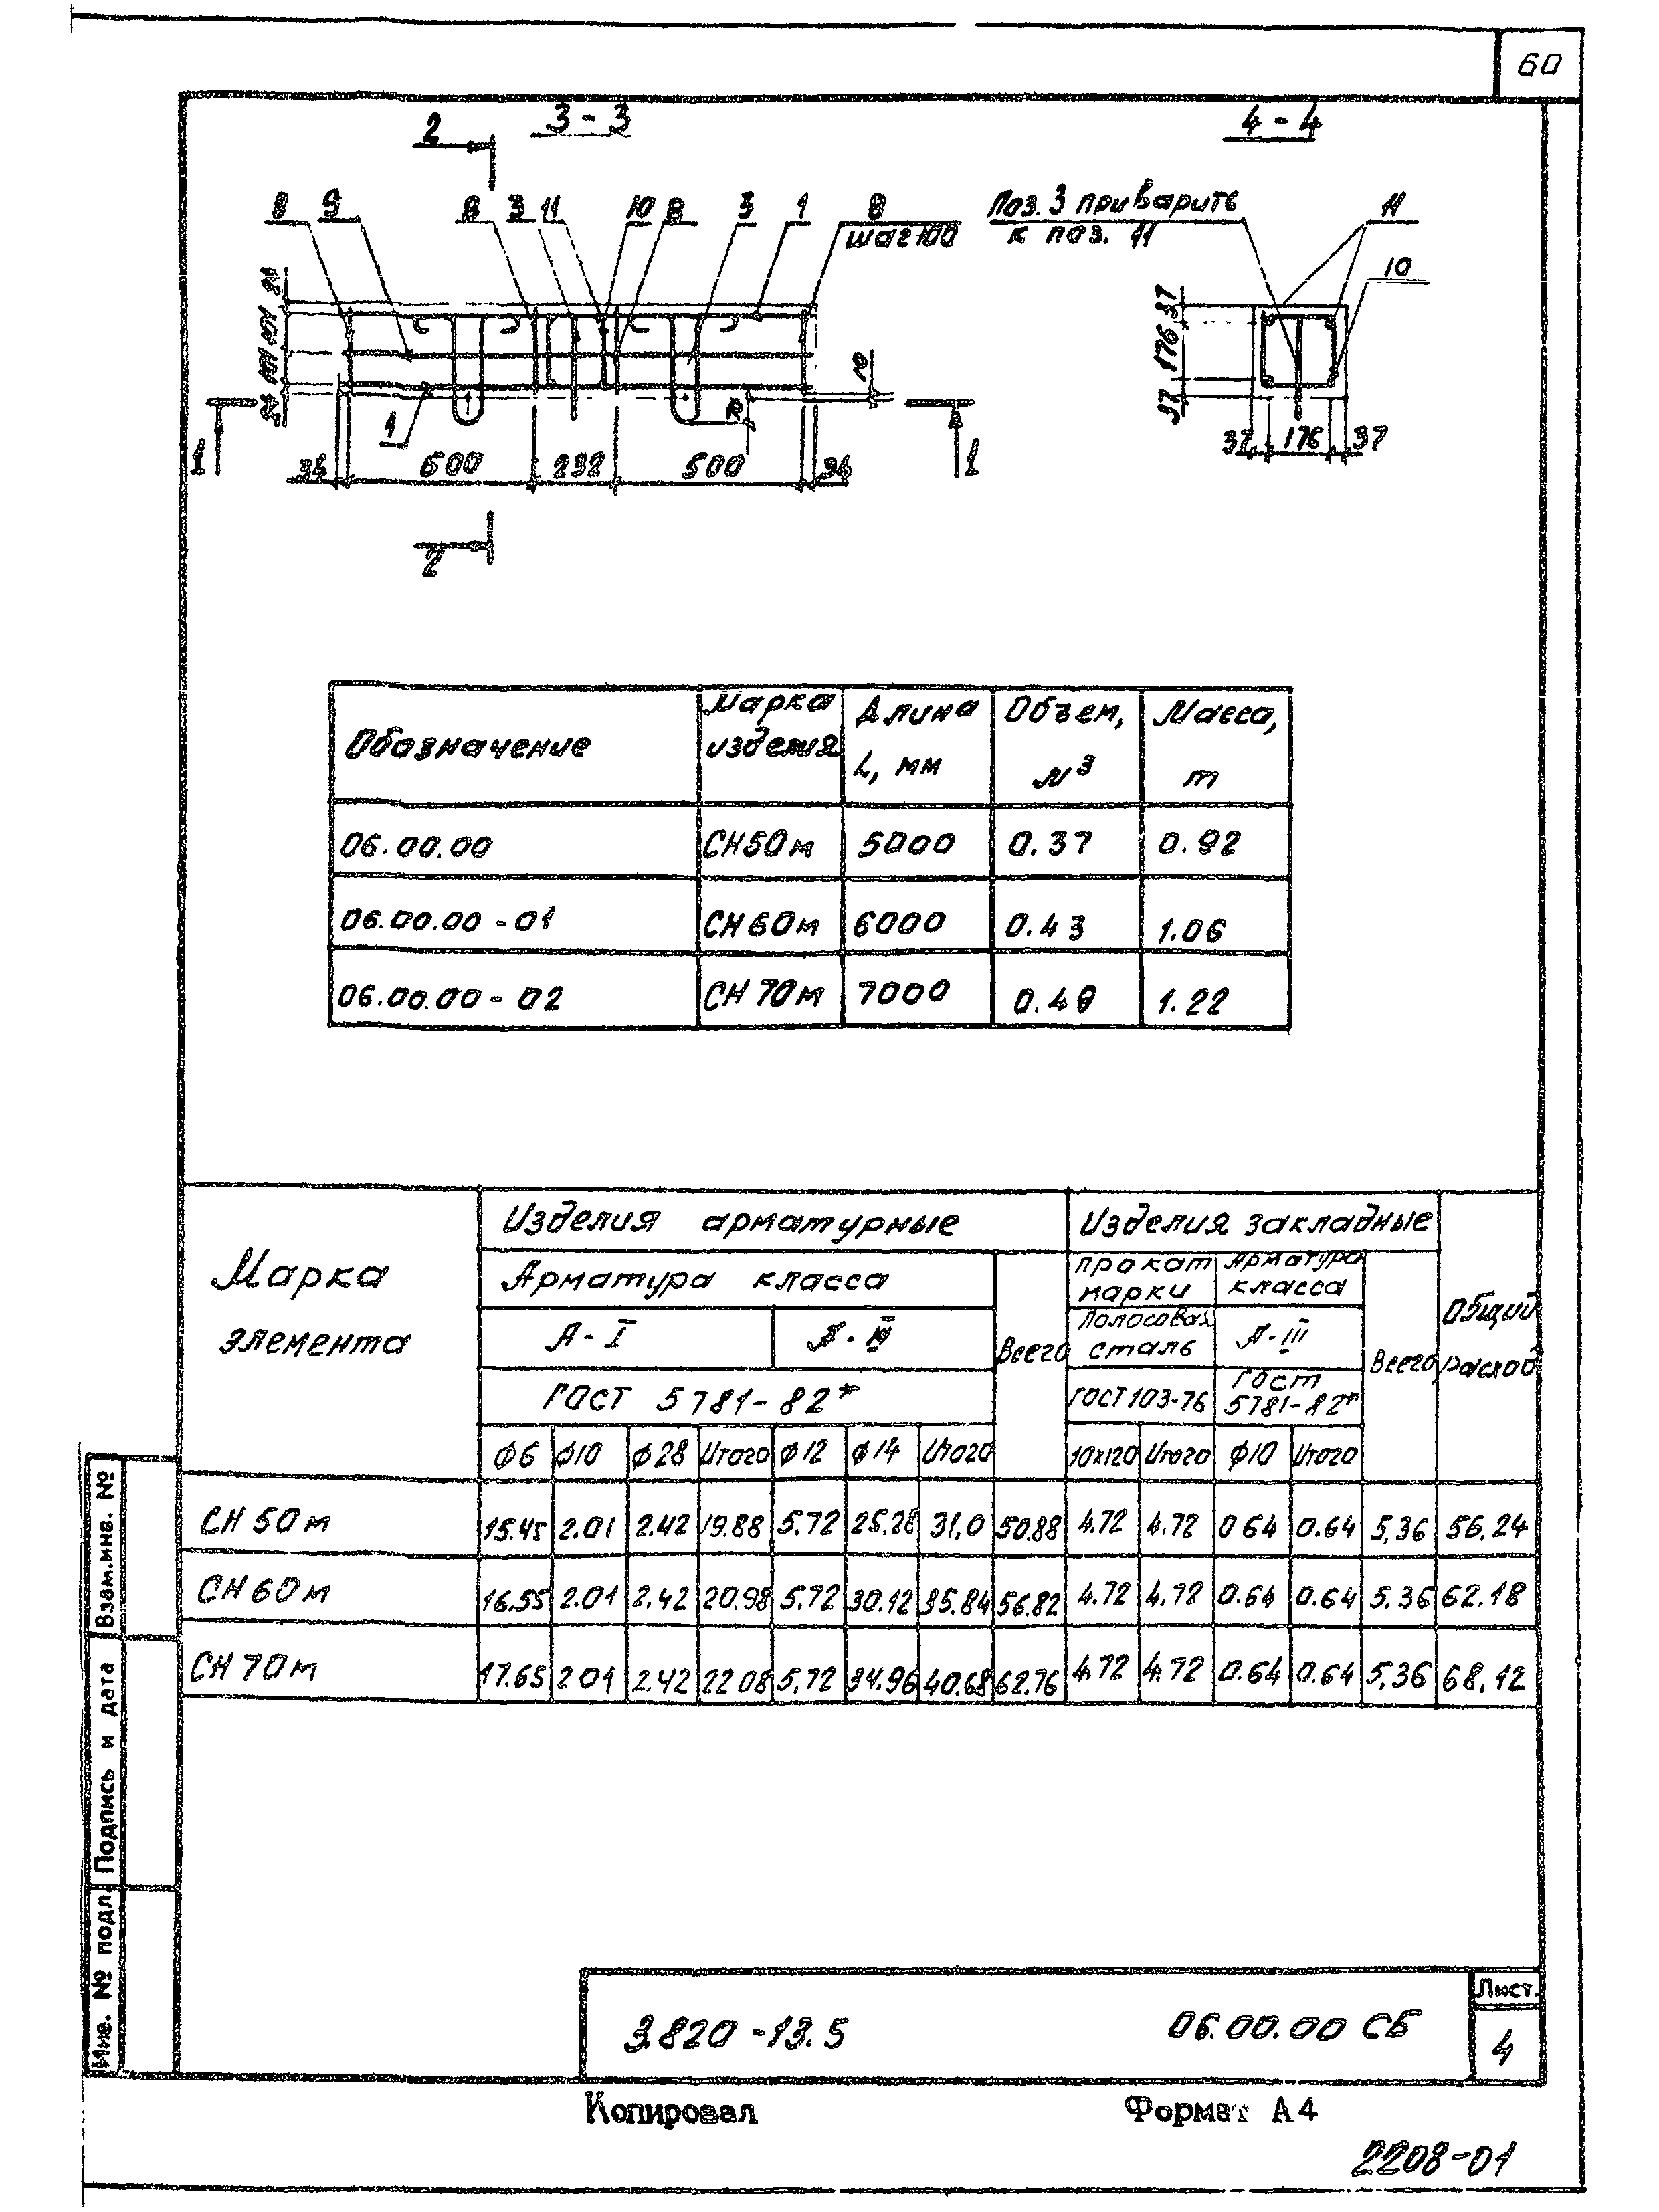 60
3-3
4-4
2
8 9 8 3 11 10 8 3 1 8
шаг 100
Поз. 3 приварить
к поз. 11
11
10
37 176 37
1
1
1
34 600 232 500 34
37 176 37
2
Обозначение Марка изделия Длина L, мм Объем, м³ Масса, т
06.00.00 СН50м 5000 0.37 0.92
06.00.00-01 СН60м 6000 0.43 1.06
06.00.00-02 СН70м 7000 0.49 1.22
Марка элемента
Изделия арматурные Изделия закладные
Общий расход
Арматура класса Всего прокат марки Арматура класса Всего
А-I А-III Полосовая сталь А-III
ГОСТ 5781-82* ГОСТ 103-76 ГОСТ 5781-82*
ф6 ф10 ф28 Итого ф12 ф14 Итого 10х120 Итого ф10 Итого
СН50м 15.45 2.01 2.42 19.88 5.72 25.28 31,0 50.88 4.72 4.72 0 64 0.64 5,36 56,24
СН60м 16.55 2.01 2.42 20.98 5.72 30.12 35.84 56.82 4.72 4.72 0.64 0.64 5.36 62.18
СН70м 17.65 2 01 2.42 22 08 5,72 34.96 40.68 62.76 4.72 4.72 0.64 0.64 5,36 68,12
Взам.инв. №
Подпись и дата
Инв. № подл.
3.820-13.5 06.00.00 СБ
Лист.
4
Копировал Формат А4
2208-01